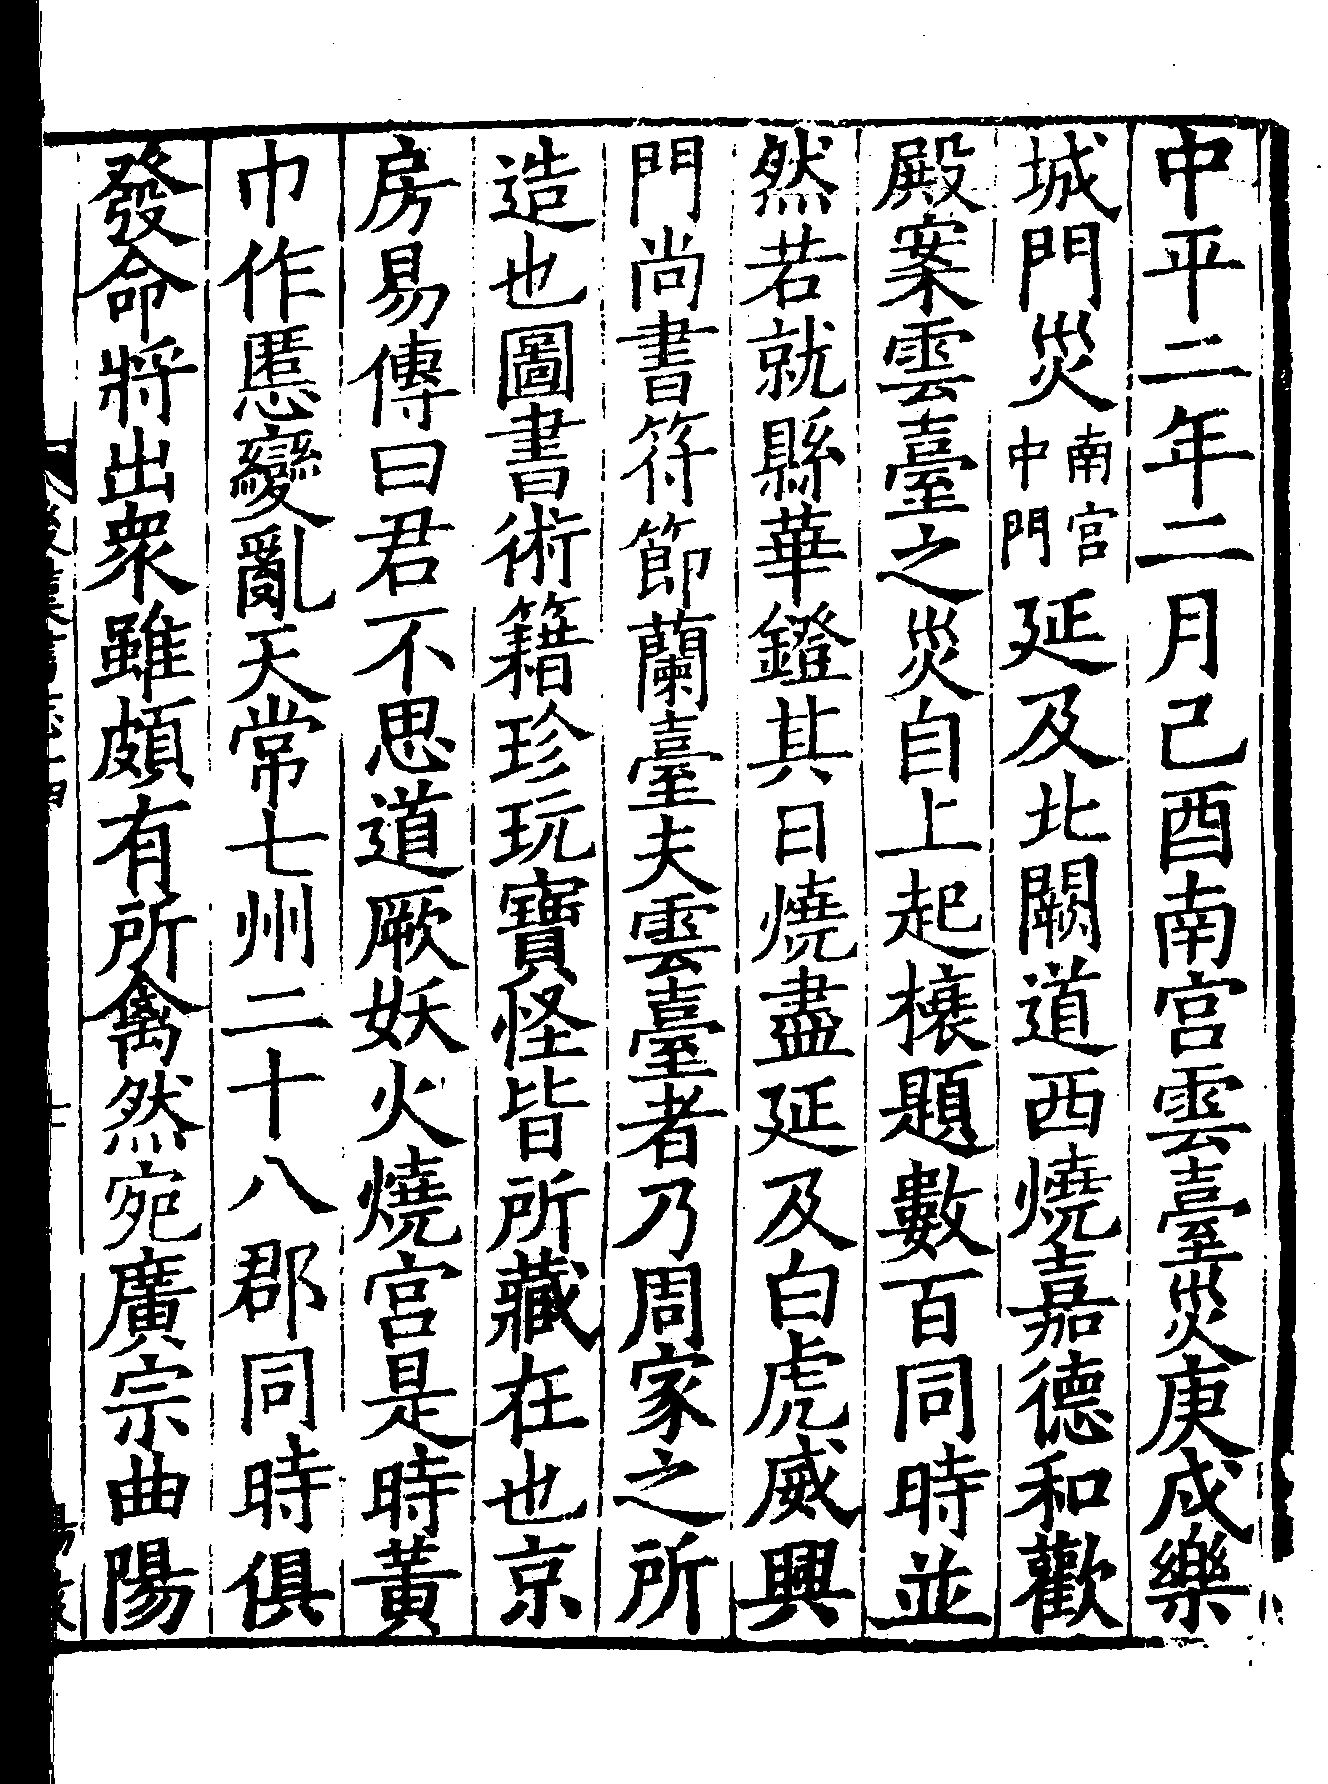 中平二年二月己酉南宮雲臺災庚戌樂
城門災南宮中門延及北闕道西燒嘉德和歡
殿案雲臺之災自上起榱題數百同時並
然若就縣華鐙其日燒盡延及白虎威興
門尚書符節蘭臺夫雲臺者乃周家之所
造也圖書術籍珍玩寶怪皆所藏在也京
房易傳曰君不思道厥妖火燒宮是時黃
巾作慝變亂天常七州二十八郡同時俱
發命將出衆雖頗有所禽然宛廣宗曲陽